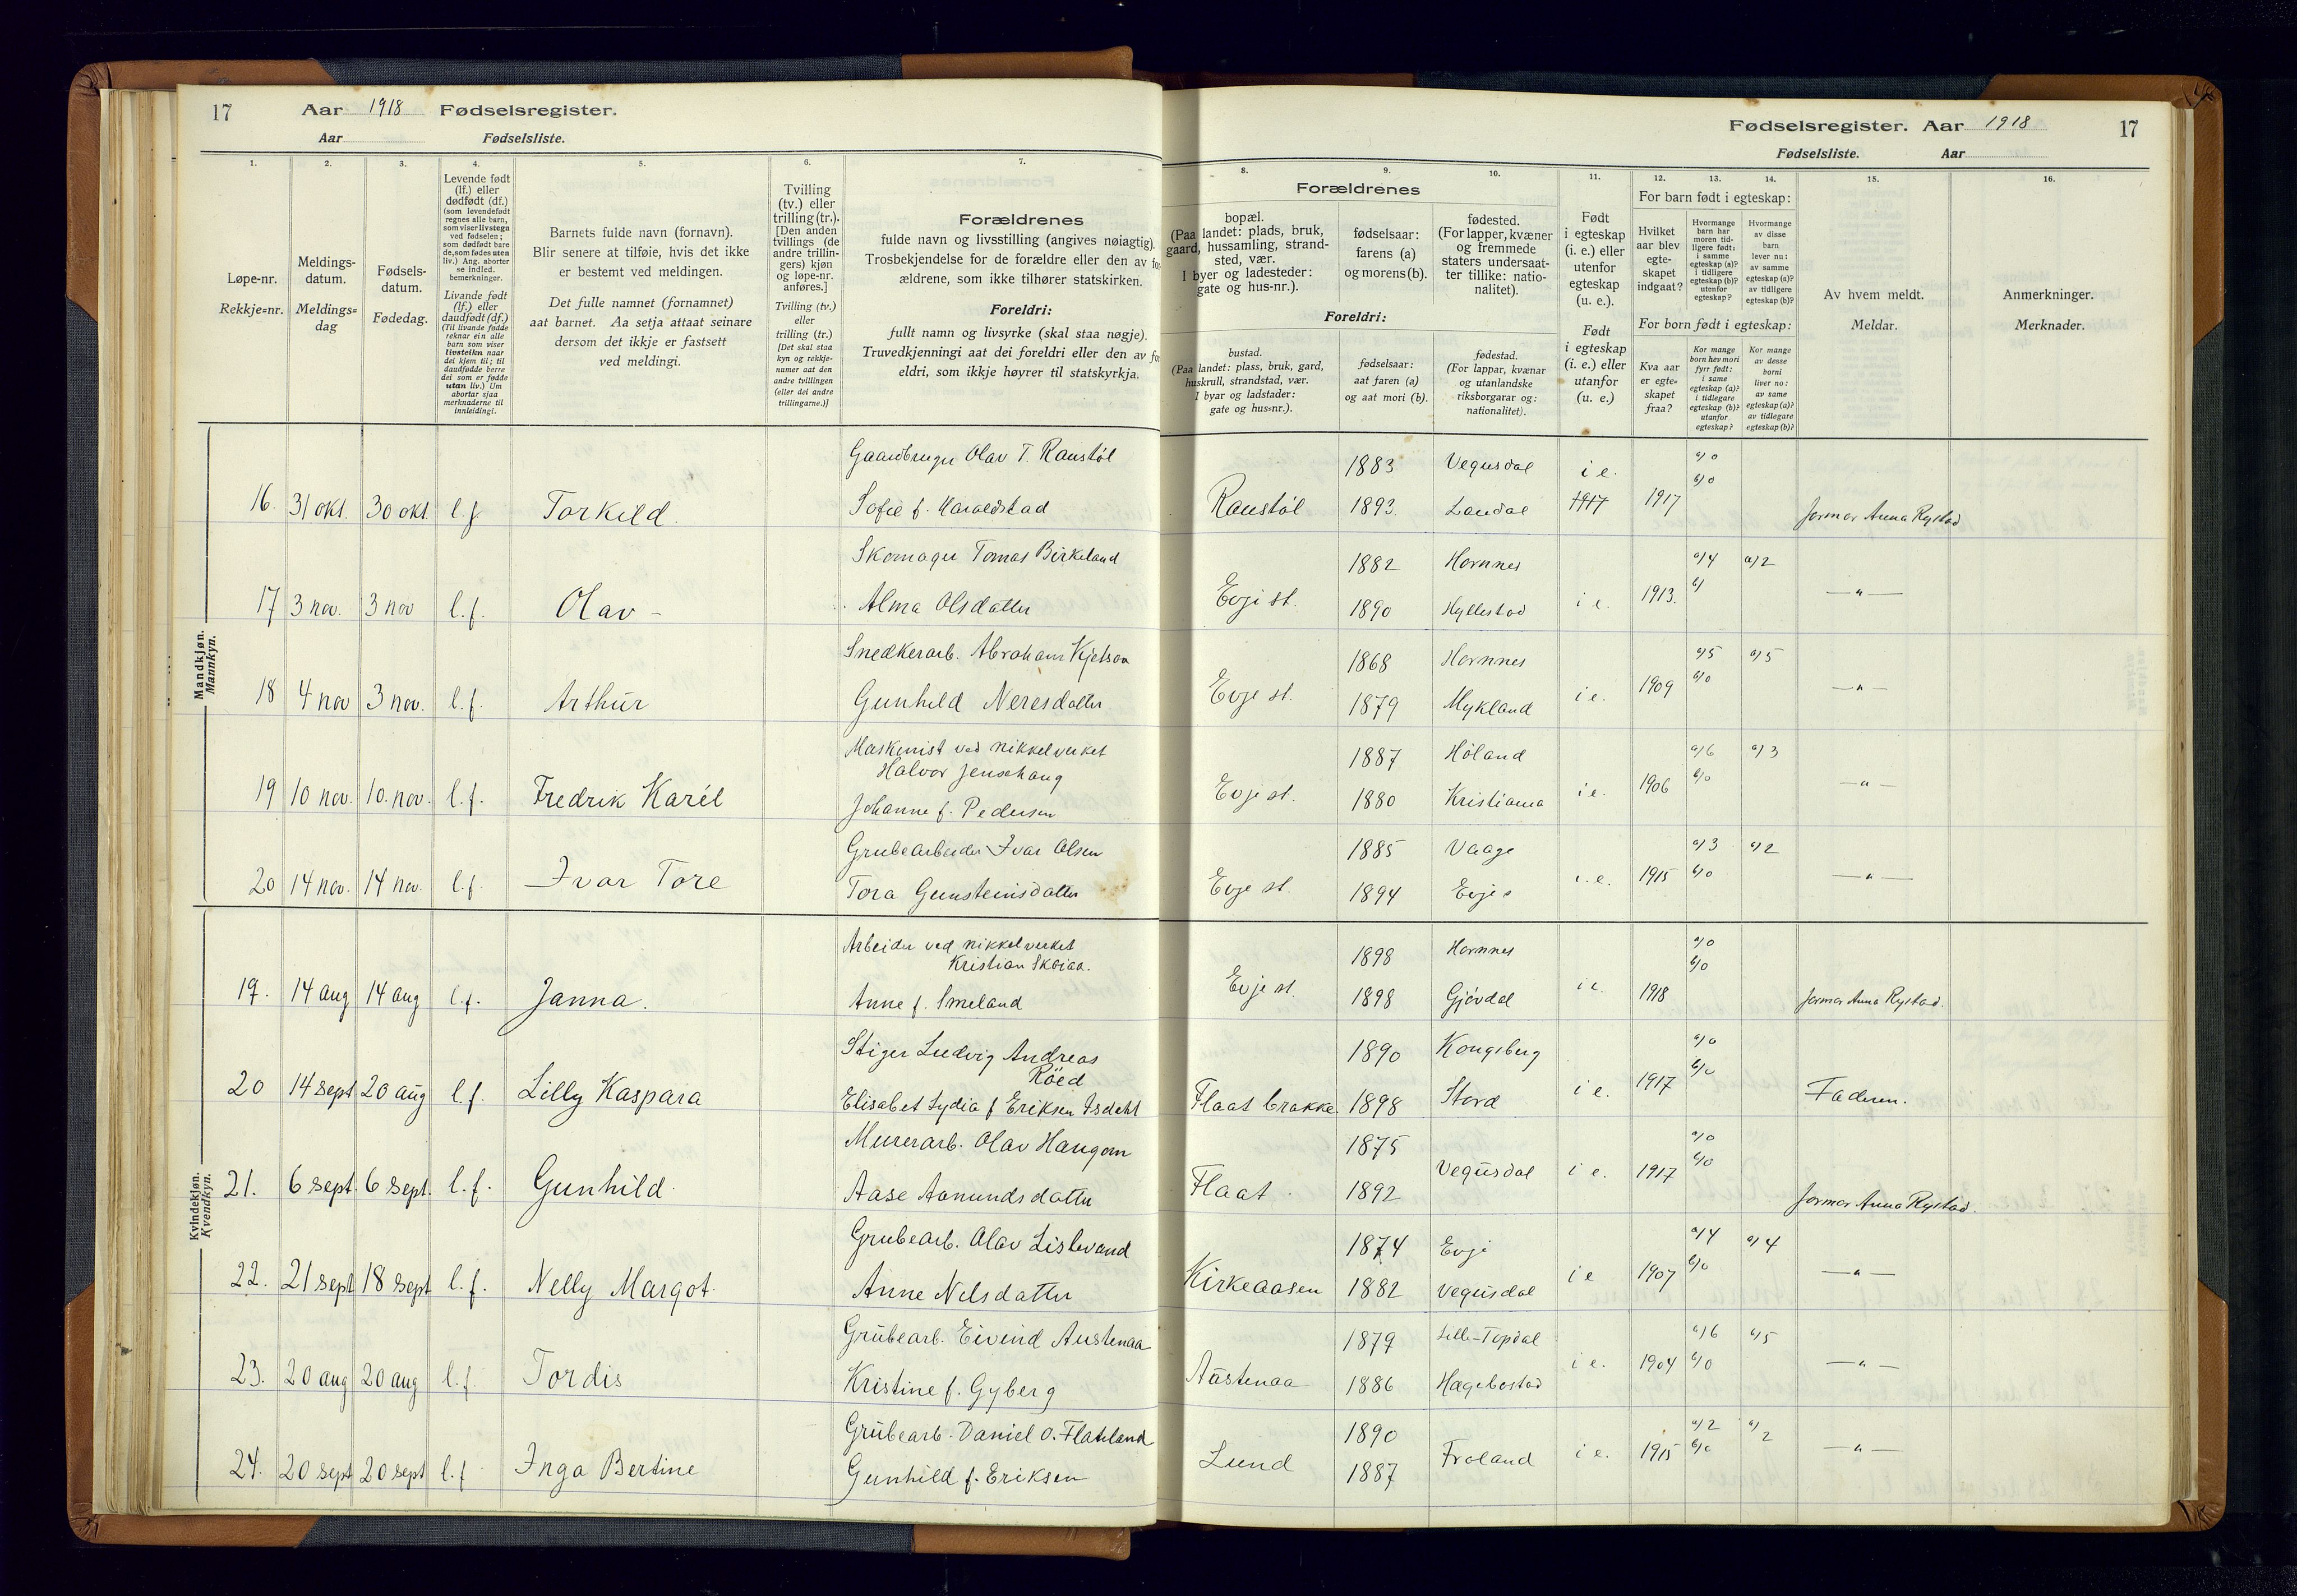 17 Aar 1918 Fødselsregister.
Aar Fødselsliste.
Fødselsregister. Aar 1918 17
Fødselsliste. Aar
1. 2. 3. 4. 5. 6. 7.
Løpe-nr.
Rekkje=nr.
Meldings-
datum.
Meldings=
dag
Fødsels-
datum.
Fødedag.
Levende født
(lf.) eller
dødfødt (df.)
(som levendefødt
regnes alle barn,
som viser livstegn
ved fødselen;
som dødfødt bare
de, som fødes uten
liv.) Ang. aborter
se indled.
bemerkninger.
Livande født
(lf.) eller
daudfødt (df.)
(Til livande fødde
reknar ein alle
barn som viser
livsteikn naar
dei kjem til; til
daudfødde berre
dei som er fødde
utan liv.) Um
abortar sjaa
merknaderne til
innleidingi.
Barnets fulde navn (fornavn).
Blir senere at tilføie, hvis det ikke
er bestemt ved meldingen.
Det fulle namnet (fornamnet)
aat barnet. Aa setja attaat seinare
dersom det ikkje er fastsett
ved meldingi.
Tvilling
(tv.) eller
trilling (tr.).
[Den anden
tvillings (de
andre trillin-
gers) kjøn
og løpe-nr.
anføres.]
Tvilling (tv.)
eller
trilling (tr.)
[Det skal staa
kyn og rekkje-
numer aat den
andre tvillingen
(eller dei andre
trillingarne.)]
Forældrenes
fulde navn og livsstilling (angives nøiagtig).
Trosbekjendelse for de forældre eller den av for-
ældrene, som ikke tilhører statskirken.
Foreldri:
fullt namn og livsyrke (skal staa nøgje).
Truvedkjenningi aat dei foreldri eller den av for-
eldri, som ikkje høyrer til statskyrkja.
8. 9. 10. 11. 12. 13. 14. 15. 16.
Forældrenes
bopæl.
(Paa landet: plads, bruk,
gaard, hussamling, strand-
sted, vær.
I byer og ladesteder:
gate og hus-nr.).
fødselsaar:
farens (a)
og morens (b).
fødested.
(For lapper, kvæner
og fremmede
staters undersaat-
ter tillike: natio-
nalitet).
Foreldri:
bustad.
(Paa landet: plass, bruk, gard,
huskrull, strandstad, vær.
I byar og ladstader:
gate og hus=nr.).
fødselsaar:
aat faren (a)
og aat mori (b).
fødestad.
(For lappar, kvænar
og utanlandske
riksborgarar og:
nationalitet).
Født
i egteskap
(i. e.) eller
utenfor
egteskap
(u. e.).
Født
i egteskap
(i. e.) eller
utanfor
(u. e.)
For barn født i egteskap:
Hvilket
aar blev
egte-
skapet
indgaat?
Hvormange
barn har
moren tid-
ligere født:
i samme
egteskap (a)?
i tidligere
egteskap (b)?
utenfor
egteskap?
Hvormange
av disse
barn
lever nu:
av samme
egteskap (a)?
av tidligere
egteskap (b)?
For born født i egteskap:
Kva aar
er egte=
skapet
fraa?
Kor mange
born hev mori
fyrr født:
i same
egteskap (a)?
i tidlegare
egteskap (b)?
utanfor
egteskap?
Kor mange
av desse
borni
liver no:
av same
egteskap (a)?
av tidlegare
egteskap (b)?
Av hvem meldt.
Meldar.
Anmerkninger.
Merknader.
Mandkjøn.
Mannkyn.
Gaardbruger Olav T. Raustøl 1883 Vegusdal i e. a/0
16. 31 okt. 30 okt. l f Torkild. Sofie f. Haraldstad Raustøl 1893. Laudal 1917 1917 b/0 Jormor Anna Rystad
Skomager Tomas Birkeland 1882 Hornnes a/4 a/2
17 3 nov. 3 nov l. f. Olav – Alma Olsdatter Evje st. 1890 Hyllestad i e. 1913. b/ — „ —
Snedkerarb. Abraham Kjetson 1868 Hornnes a/5 a/5
18 4 nov 3 nov. l. f. Arthur Gunhild Neresdatter Evje st. 1879 Mykland i e. 1909 b/0 — „ —
Maskinist ved nikkelverket
Halvor Jensehaug 1887 Høland a/6 a/3
19 10 nov. 10. nov. l. f. Fredrik Karél Johanne f. Pedersen Evje st. 1880 Kristiania i e. 1906 b/0 — „ —
Grubearbeider Ivar Olsen 1885 Vaage a/3 a/2
20 14 nov. 14 nov. l. f. Ivar Tore Tora Gunsteinsdatter Evje st. 1894 Evje i. e. 1915 b/0 — „ —
Kvindekjøn.
Kvendkyn.
Arbeider ved nikkelverket
Kristian Skaiaa. 1898 Hornnes a/0
19. 14 aug 14 aug l. f. Janna. Anne f. Smeland Evje st. 1898 Gjøvdal i e. 1918 b/0 Jormor Anna Rystad.
Stiger Ludvig Andreas
Röed 1890 Kongsberg a/0
20 14 sept 20 aug l. f. Lilly Kaspara Elisabet Lydia f Eriksen Isdahl Flaat brakke 1898 Stord i e. 1917 b/0 Faderen.
Murerarb. Olav Haugom 1875 a/0
21. 6 sept. 6 sept. l. f. Gunhild. Aase Aanundsdatter Flaat. 1892 Vegusdal i e. 1917 b/0 Jormor Anna Rystad.
Grubearb. Olav Lislevand 1874 Evje a/4 a/4
22. 21 sept 18 sept l. f. Nelly Margot. Anne Nilsdatter Kirkeaasen 1882 Vegusdal i e 1907 b/0 — „ —
Grubearb. Eivind Austenaa 1879 Lille-Topdal a/6 a/5
23. 20 aug 20 aug l. f. Tordis Kristine f. Gyberg Austenaa 1886 Hægebostad i e. 1904 b/0 — „ —
Grubearb. Daniel O. Flateland 1890 a/2 a/2
24. 20 sept 20 sept l. f Inga Bertine Gunhild f. Eriksen Lund 1887 Froland i e. 1915 b/0 — „ —